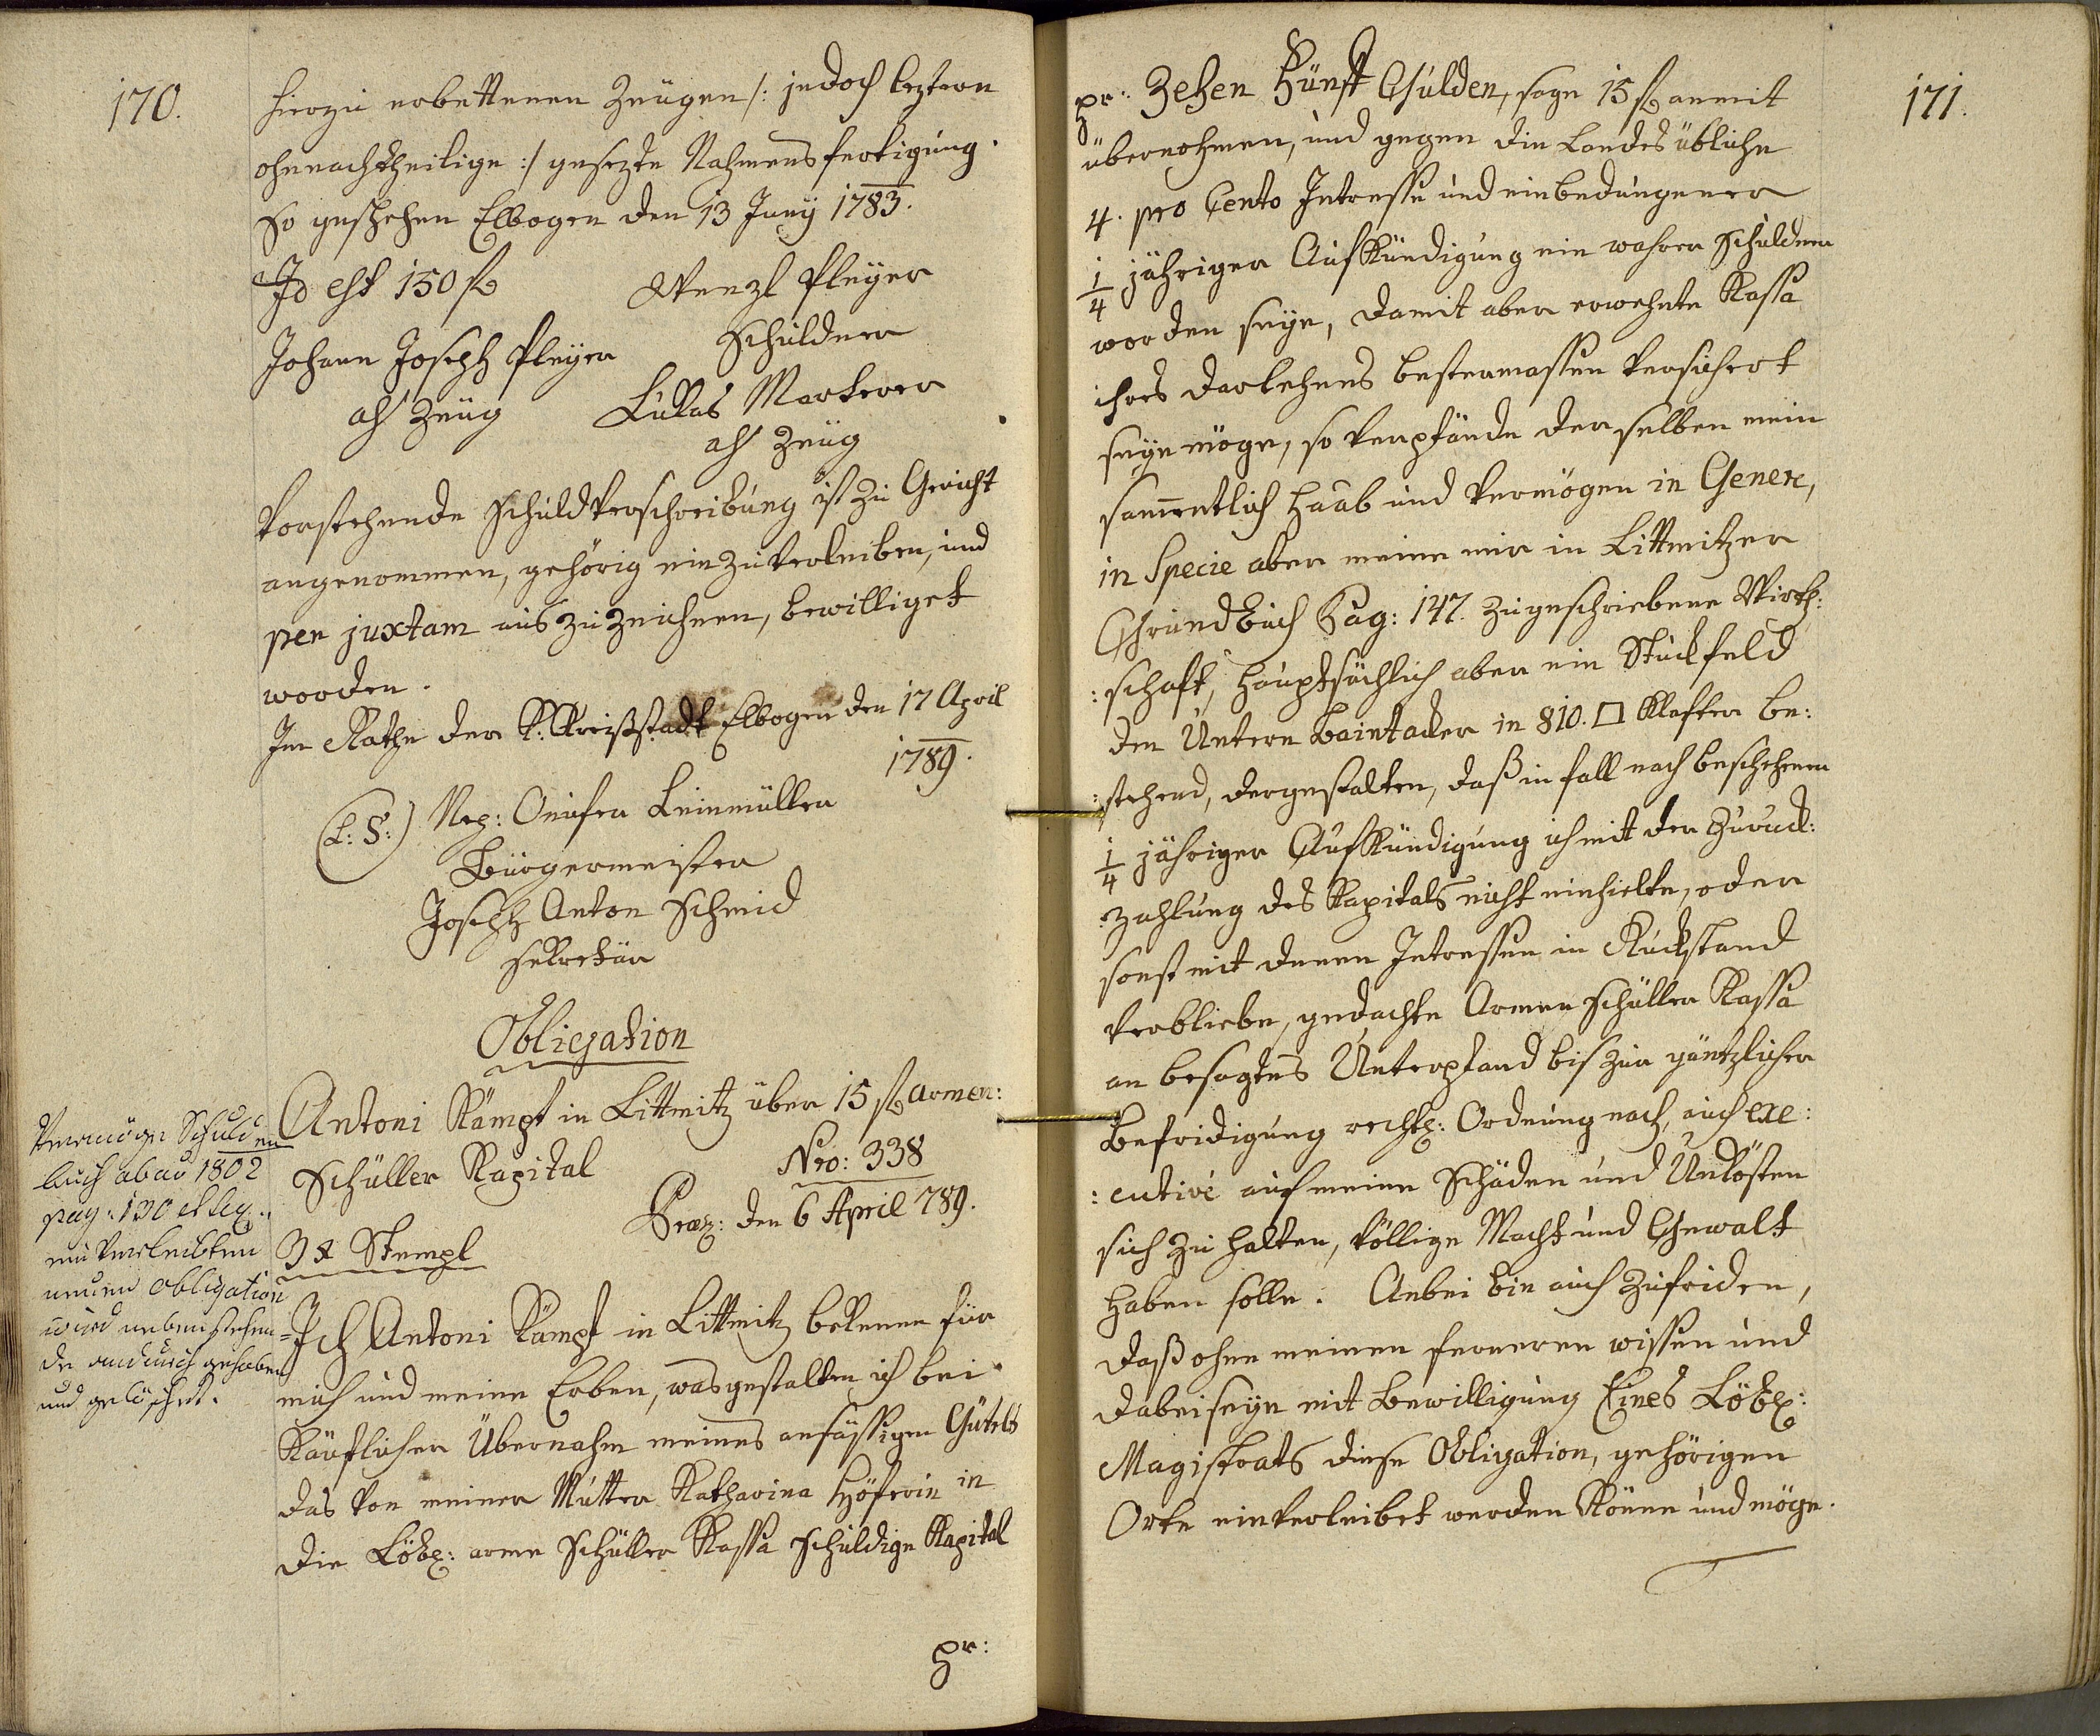 170.
hierzu erbettenen Zeügen /: jedoch leztern
ohnnachtheilige :/ gesezte Nahmensfertigung.
So geschehen Elbogen den 13 Juny 1783.
Id est 150 f
Wenzl Pleÿer
Schuldner
Johann Joseph Pleÿer
als Zeüg
Lukas Markerer
als Zeüg
Vorstehende Schuldverschreibung ist zu Gericht
angenommen, gehörig einzuverleiben, und
per juxtam auszuzeichnen, bewilliget
worden.
Im Rathe der K: Kreißstadt Elbogen den 17 April
1789.
(L: S:) Nep: Leinmüller
Bürgermeister
Joseph Anton Schmid
Sekretär
Obligation
Antoni Kämpf in Littmitz über 15 f armen:
Schüller Kapital
Nro: 338
Præs: den 6 April 789.
3 x Stempl
Vermög Schulden
buch ab aõ 1802
pag: 130 et seq:
einverleibten
neuen Obligation
wird nebenstehen=
de andurch gehoben
und gelöschet.
Ich Antoni Kämpf in Littmitz bekenne für
mich und meine Erben, was gestalten ich bei
Käuflicher Übernahm meines ansässigen Gütels
das von meiner Mutter Katharina Höferin in
die Löbl: arme Schüller Kassa schuldige Kapital
pr:
171.
pr: Zehen Fünf Gulden, sage 15 f anmit
übernohmen, und gegen die Landes übliche
4. pro Cento Intresse und einbedungener
1/4 jähriger Aufkündigung ein wahrer Schuldner
worden seÿe, damit aber erwehnte Kassa
ihres Darlehens bestermassen versichert
seÿn möge, so verpfände derselben mein
sam̄entlich Haab und Vermögen in Genere,
in Specie aber meine mir in Littmitzer
Grundbuch Pag: 147. zugeschriebene Wirth:
:schaft, hauptsächlich aber ein Stuckfeld
den Untern Baintacker in 810. □ Klafter be:
:stehend, dergestalten, daß in fall nach beschehener
1/4 jähriger Aufkündigung ich mit der Zuruck:
:zahlung des Kapitals nicht einhielte, oder
sonst mit denen Intressen in Ruckstand
verbliebe, gedachte Armen Schüller Kassa
an besagtes Unterpfand bis zur gäntzlicher
Befridigung rechtl: Ordnung nach, auch exe:
:cutivè auf meine Schäden und Unkösten
sich zu halten, völlige Macht und Gewalt
haben solle. Anbei bin auch zufriden,
daß ohne meinen ferneren wissen und
dabeiseÿn mit Bewilligung Eines Löbl:
Magistrats diese Obligation, gehörigen
Orte einverleibet werden könne und möge.